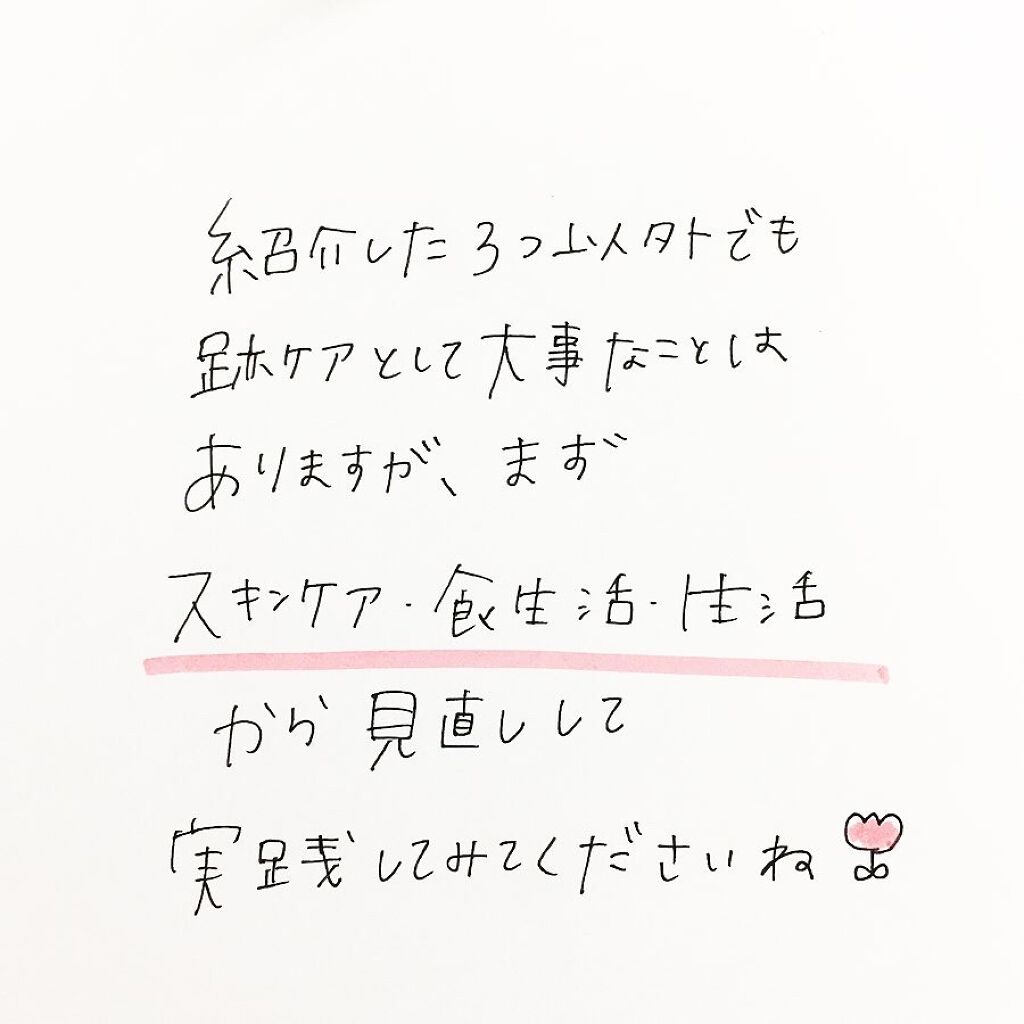 紹介した3つ以外でも
跡ケアとして大事なことは
ありますが、まず
スキンケア・食生活・性活
から見直しして
実践してみてくださいね